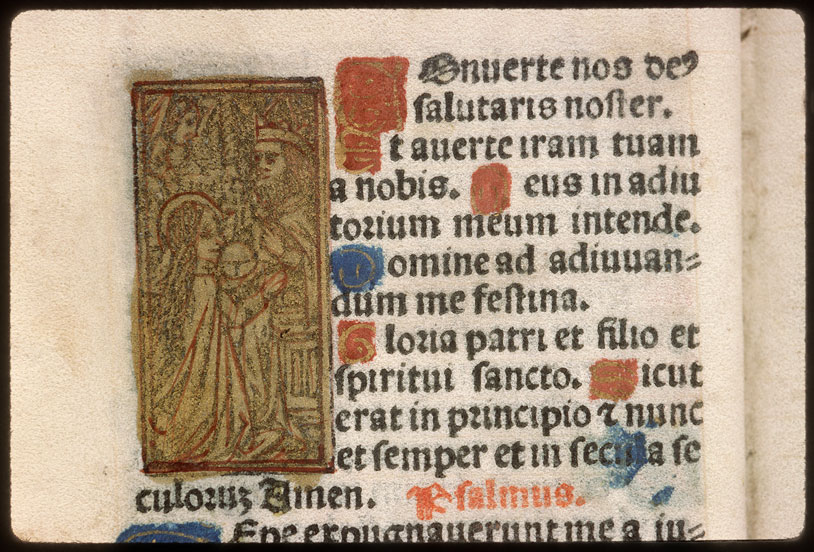 COnuerte nos deꝰ
salutaris noster.
Et auerte iram tuam
a nobis. Deus in adiu
torium meum intende.
Domine ad adiuuan=
dum me festina.
Gloria patri et filio et
spiritui sancto. Sicut
erat in principio ⁊ nunc
et semper et in secula se
culoruꝫ Amen. Psalmus.
SEpe expugnauerunt me a iu=